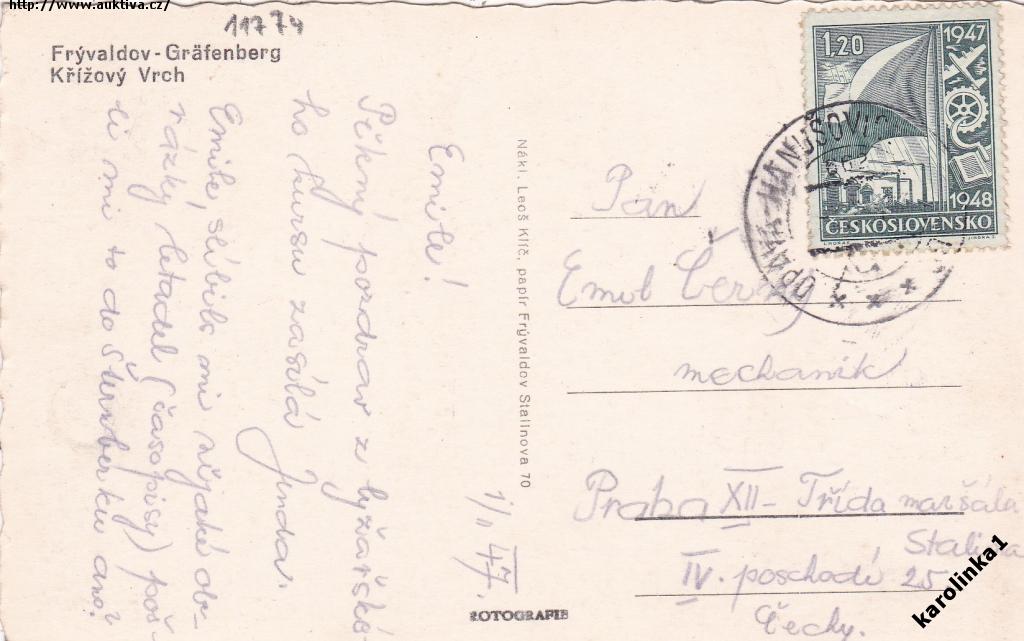 http://www.auktiva.cz/
11774
Frývaldov-Gräfenberg
Křížový Vrch
Emile!
Pěkný pozdrav z lyžařské-
ho kursu zasílá
Jenda.
Emile, slíbils mi nějaké ob-
rázky letadel (časopisy) poš-
li mi to do Šternberku ano?
1/II 47.
Nákl. Leoš Klíč, papír Frývaldov Stalinova 70
ROTOGRAFIE
1,20
1947
1948
ČESKOSLOVENSKO
HANUŠOVIC
Pan
Emil Černý
mechanik
Praha XII - Třída maršála
Stalina
IV. poschodí 25
Čechy.
karolinka1